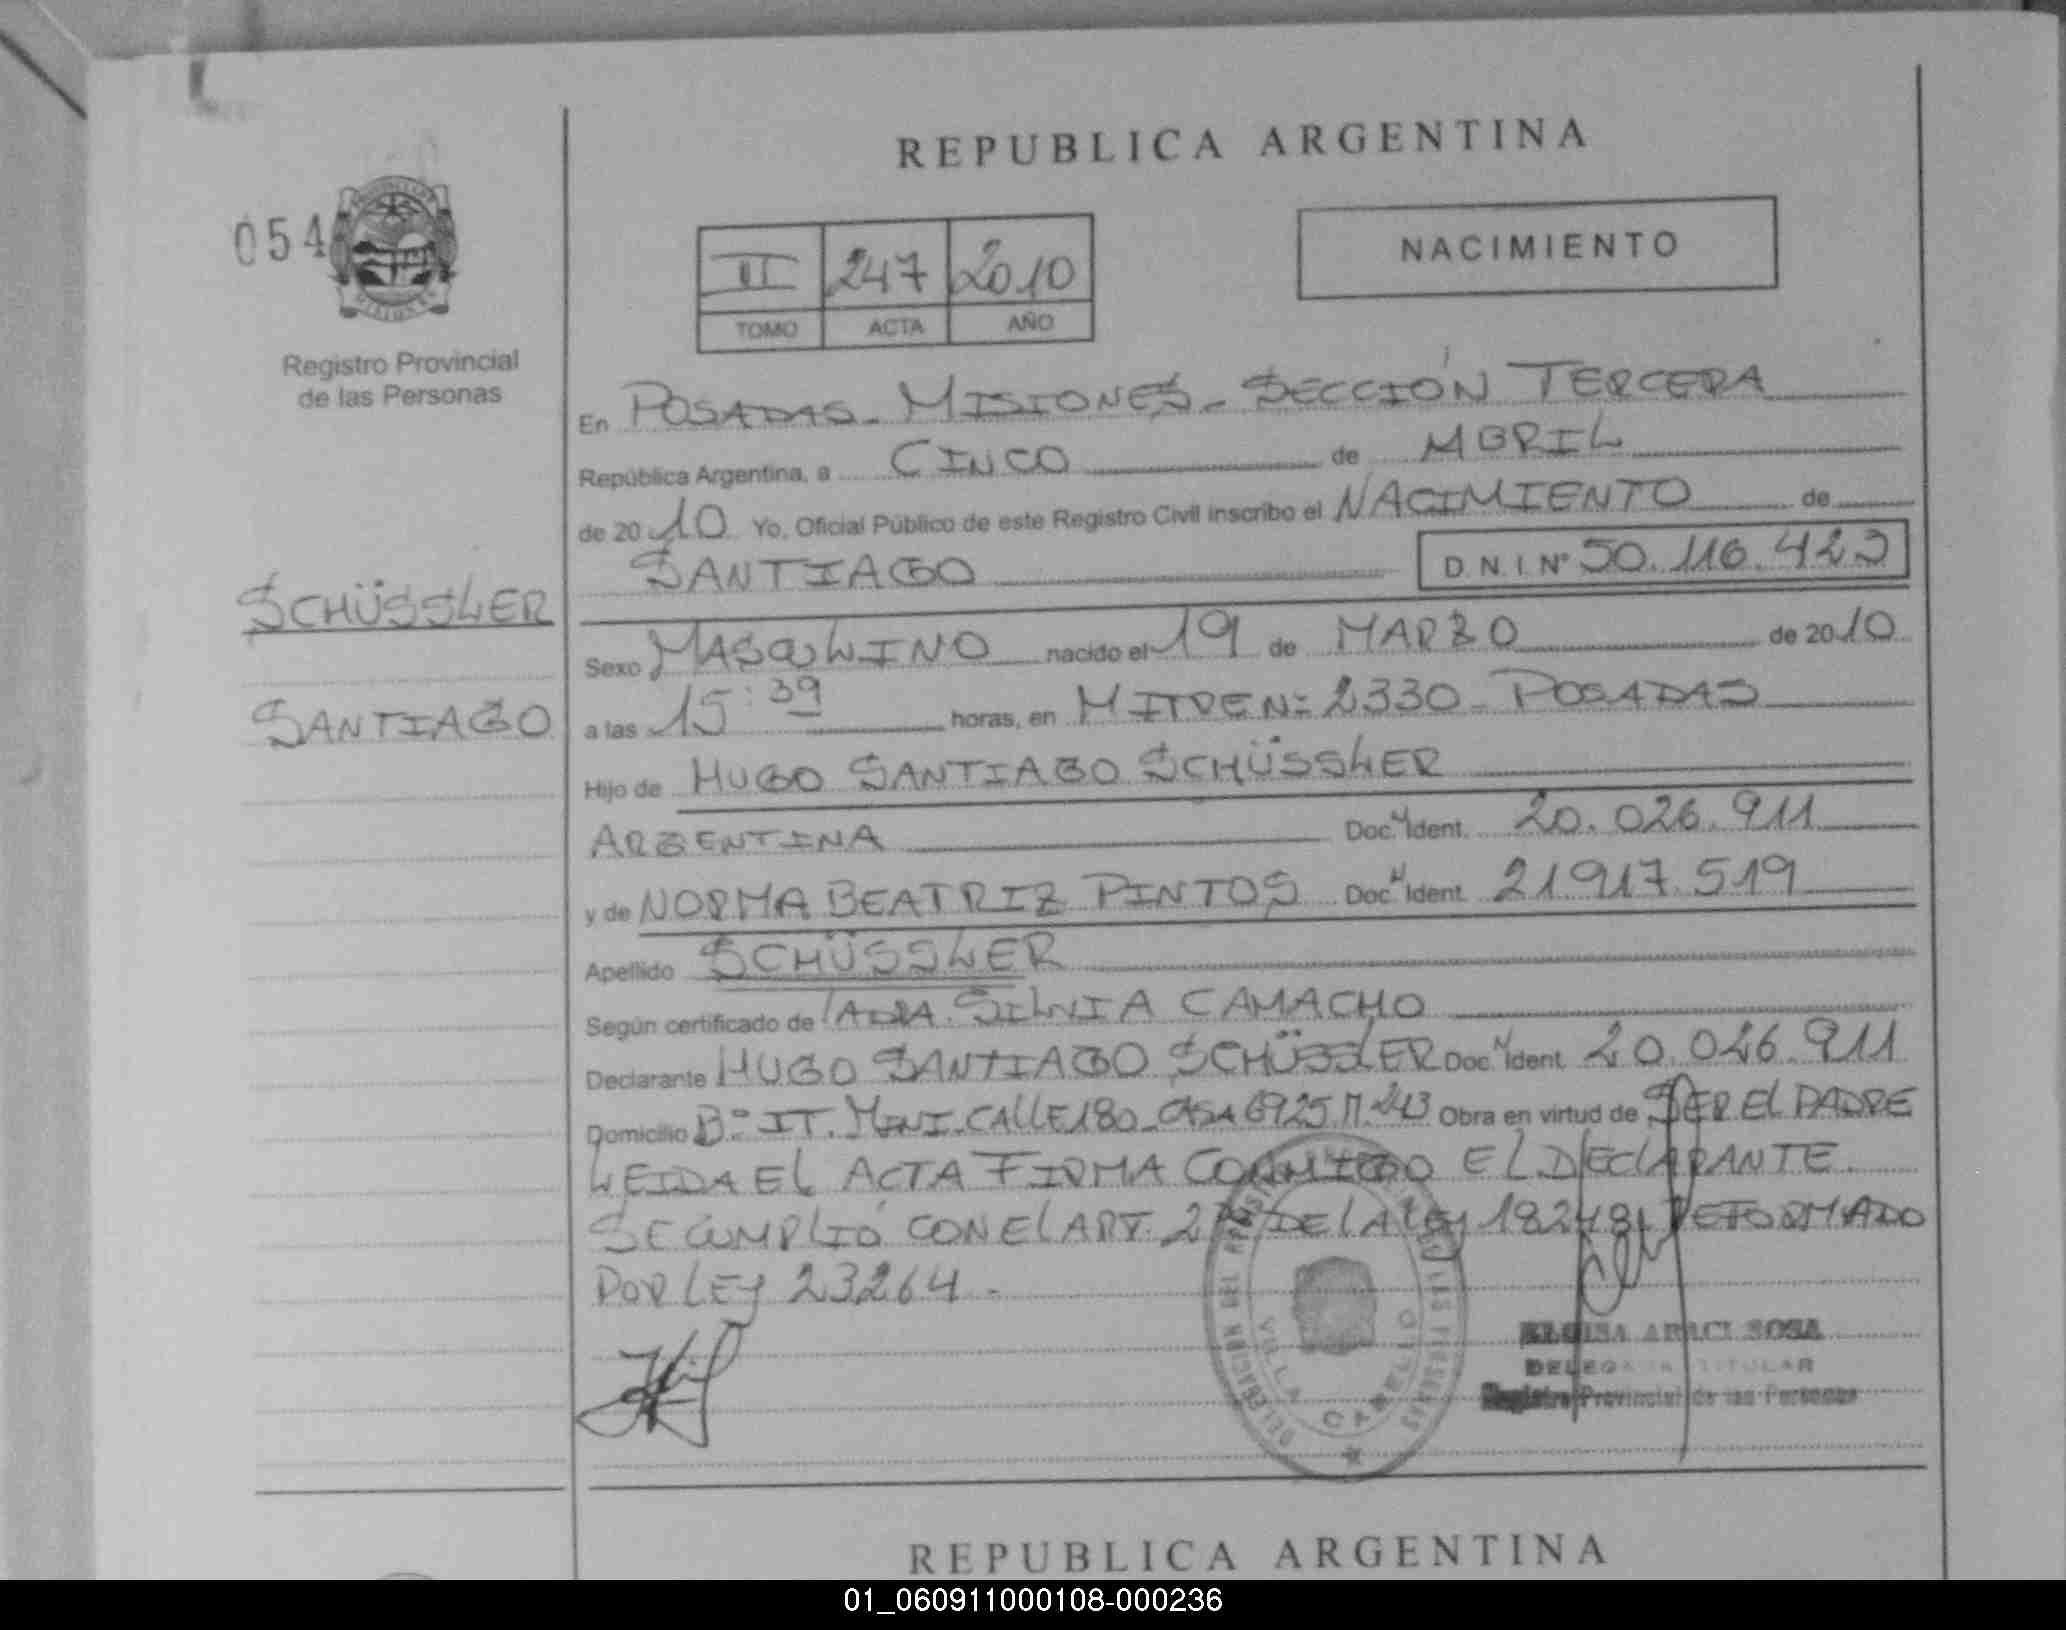 REPUBLICA ARGENTINA
054
II 247 2010
TOMO ACTA AÑO
NACIMIENTO
Registro Provincial
de las Personas
En POSADAS - MISIONES - SECCIÓN TERCERA
República Argentina, a CINCO de ABRIL
de 2010 Yo, Oficial Público de este Registro Civil inscribo el NACIMIENTO de
SANTIAGO D.N.I. Nº 50.116.423
SCHÜSSLER
SANTIAGO
Sexo MASCULINO nacido el 19 de MARZO de 2010
a las 15:39 horas, en MITRE Nº 2330 - POSADAS
Hijo de HUGO SANTIAGO SCHÜSSLER
ARGENTINA Doc. N Ident. 20.026.911
y de NORMA BEATRIZ PINTOS Doc. N Ident. 21917.519
Apellido SCHÜSSLER
Según certificado de LA DRA. SILVIA CAMACHO
Declarante HUGO SANTIAGO SCHÜSSLER Doc. N Ident. 20.026.911
Domicilio Bº IT. MINI. CALLE 180 - CASA 6925 Obra en virtud de SER EL PADRE
LEIDA EL ACTA FIRMA CONMIGO EL DECLARANTE
SE CUMPLIÓ CON EL ART. DE LA LEY 18248 REFORMADO
POR LEY 23264 -
DELEGACION DEL REGISTRO PROVINCIAL DE LAS PERSONAS
VILLA CABELLO
ELOISA ARACI SOSA
DELEGADA TITULAR
Registro Provincial de las Personas
REPUBLICA ARGENTINA
01_060911000108-000236